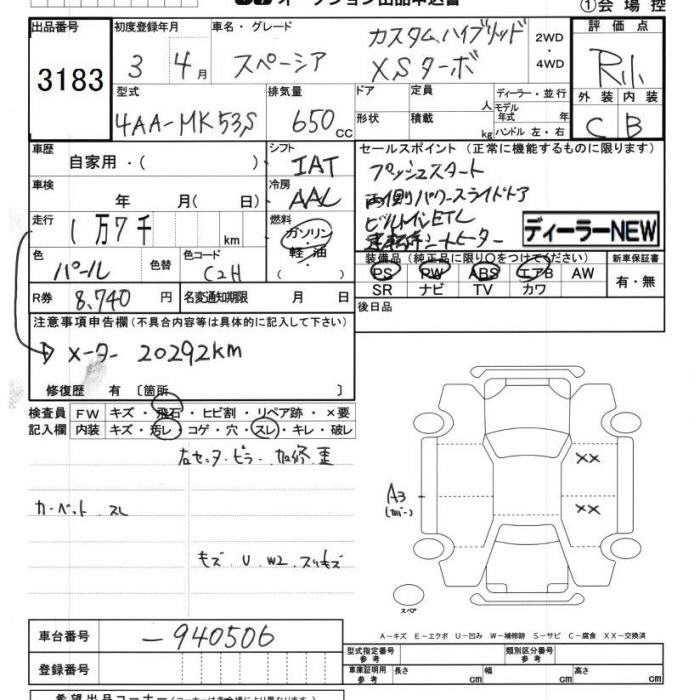 オークション出品申込書
①会場控
出品番号 初度登録年月 車名・グレード 評価点
3183
3年 4月 スペーシア カスタムハイブリッド XSターボ 2WD・4WD R1
型式 排気量 ドア 定員 人 ディーラー・並行 外装 内装
4AA-MK53S 650cc 形状 積載 kg モデル年式 年 ハンドル 左・右 C B
車歴 自家用・( ) シフト IAT セールスポイント (正常に機能するものに限ります)
プッシュスタート
車検 年 月(日) 冷房 AAC 両側パワースライドドア
ビルトインETC
走行 1万7千 km 燃料 ガソリン 軽油 ( ) 運転席シートヒーター ディーラーNEW
色 パール 色替 色コード C2H 装備品 (純正品に限り○をつけてください) 新車保証書
PS RW ABS エアB AW 有・無
SR ナビ TV カワ
R券 8,740円 名変通知期限 月 日 後日品
注意事項申告欄 (不具合内容等は具体的に記入して下さい)
メーター 20292km
修復歴 有 〔箇所 〕
検査員 FW キズ・飛石・ヒビ割・リペア跡・×要
記入欄 内装 キズ・汚レ・コゲ・穴・スレ・キレ・破レ
右センターピラー 加修 歪
XX
A3
(カバー)
XX
カーペット スレ
キズ U W2 スリキズ
スペア
A-キズ E-エクボ U-凹み W-補修跡 S-サビ C-腐食 XX-交換済
車台番号 -940506
型式指定番号 参考 類別区分番号 参考
登録番号 車庫証明用 参考 長さ cm 幅 cm 高さ cm
希望出品コーナー